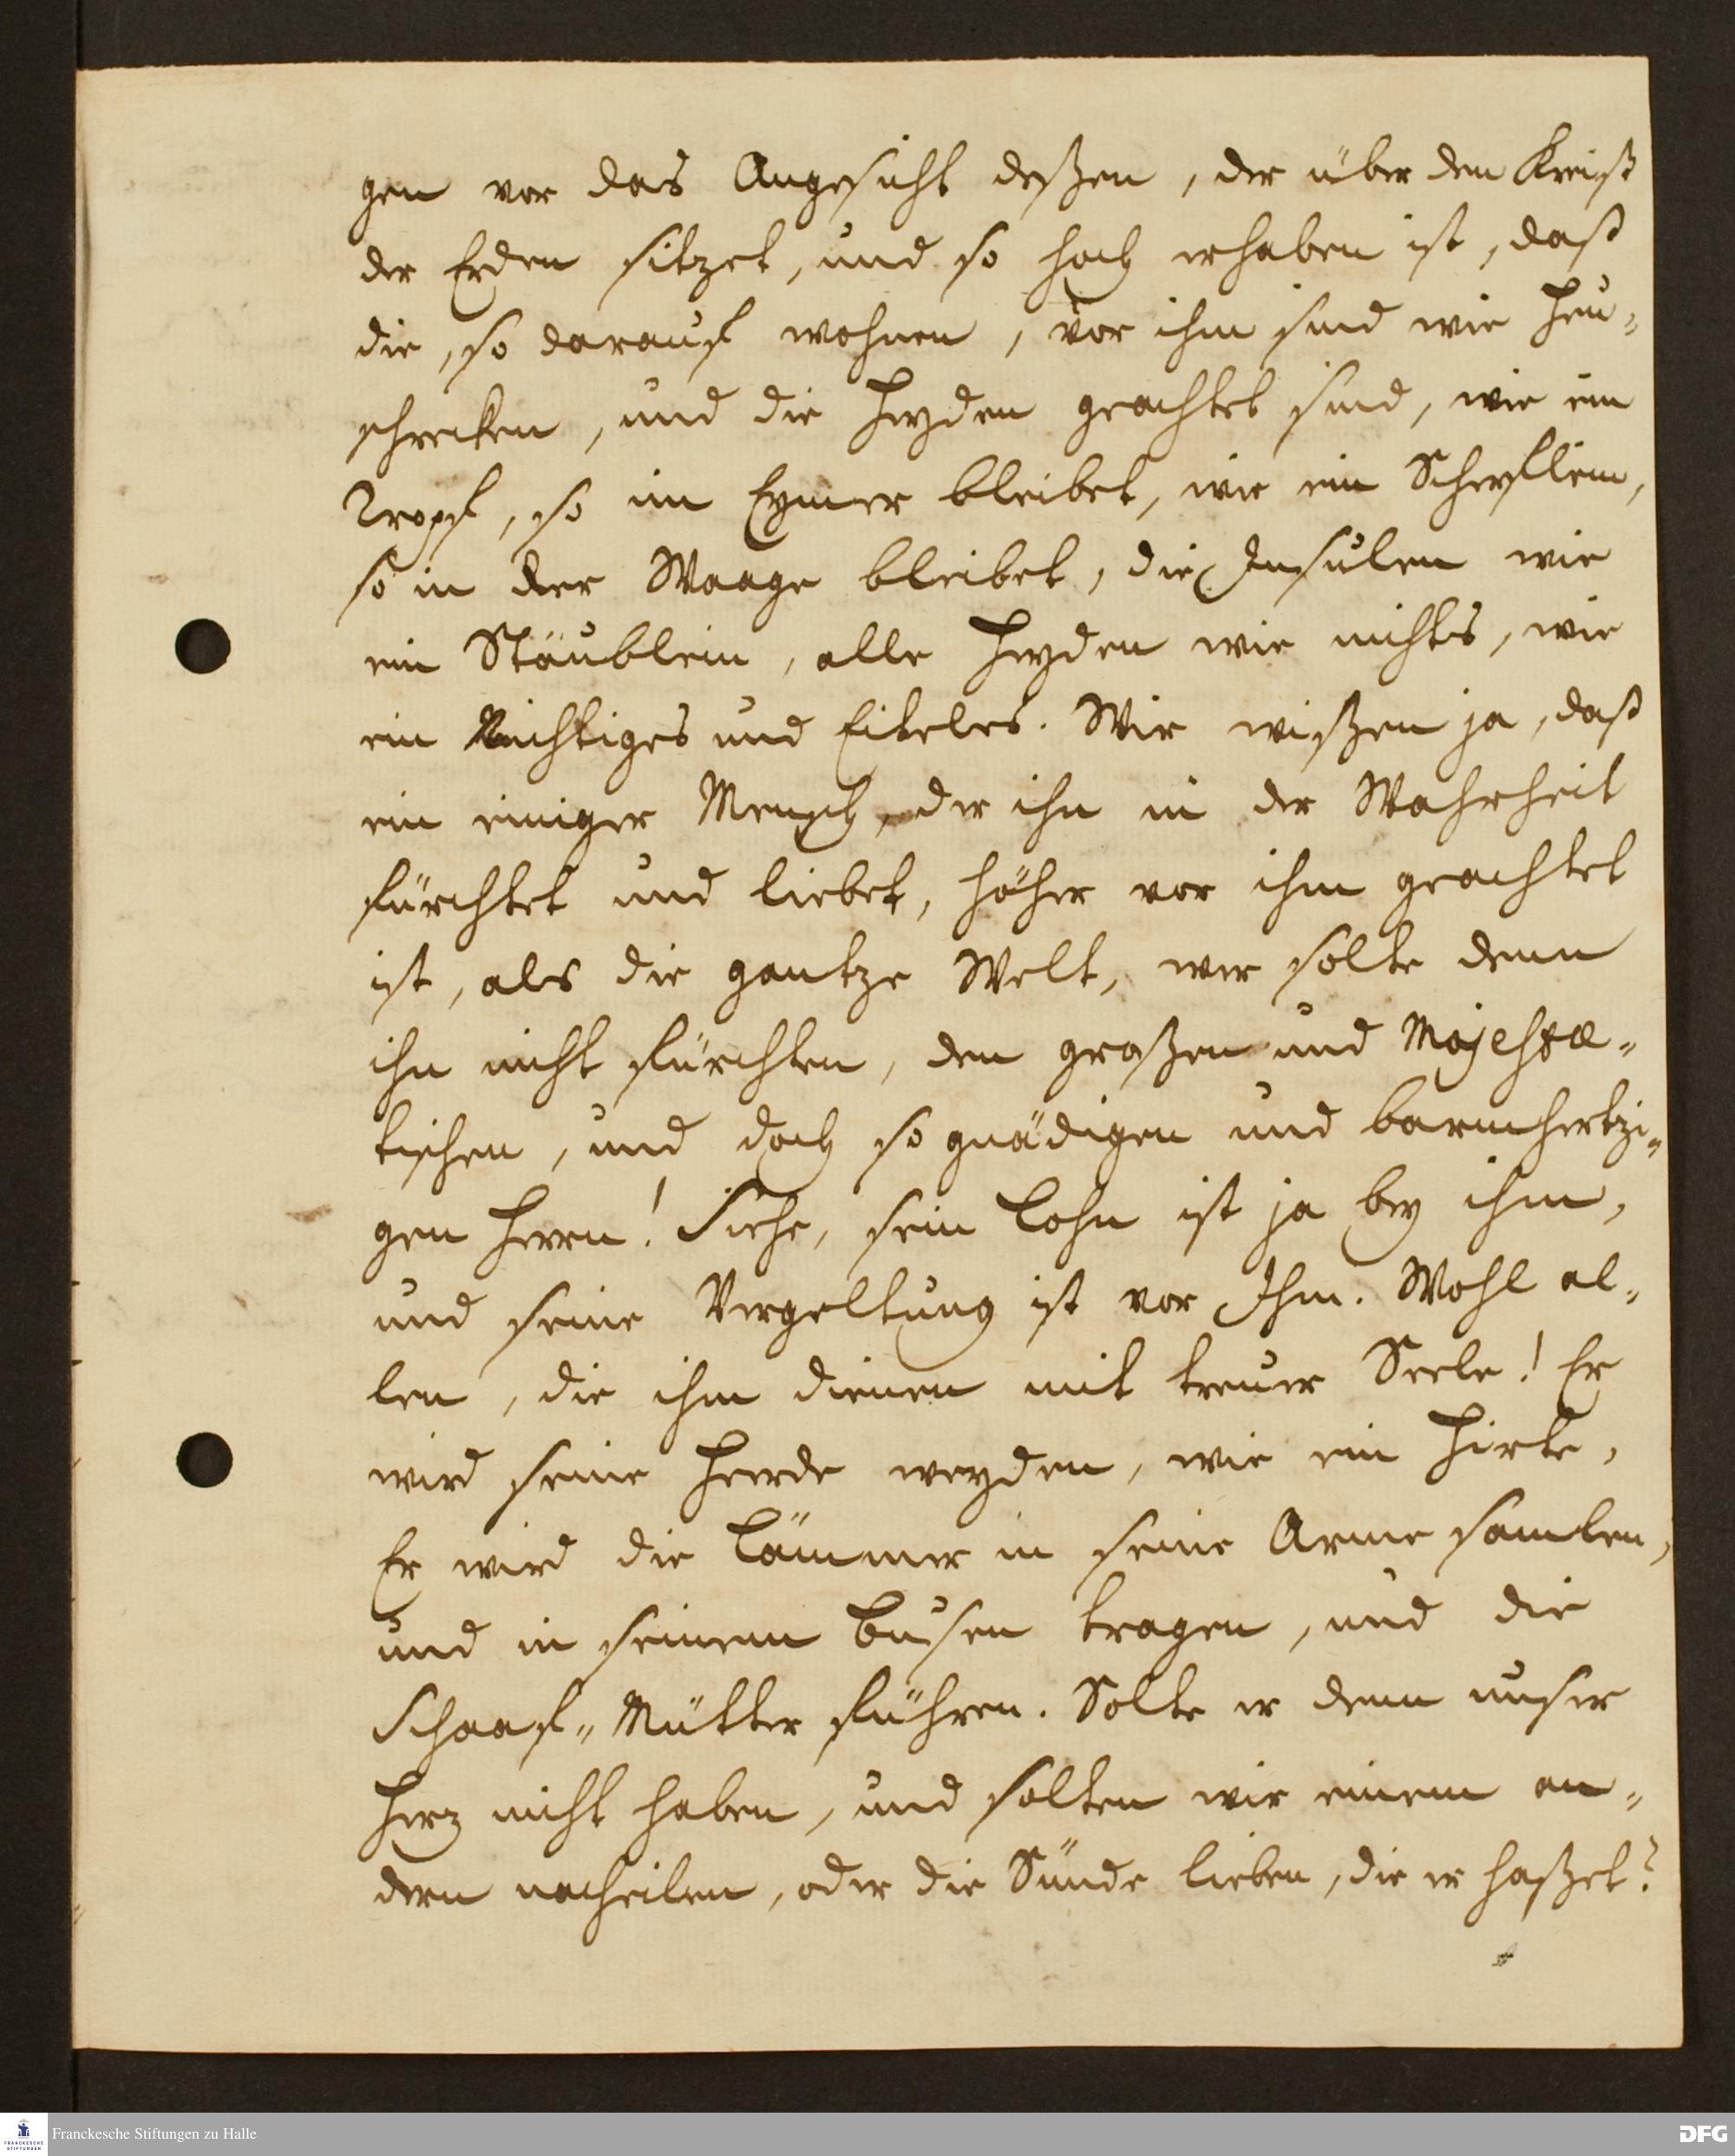 gen vor das Angesicht deßen, der über den Kreiß
der Erden sitzet, und so hoch erhaben ist, daß
die, so darauf wohnen, vor ihm sind wie Heu-
schrecken, und die Heyden geachtet sind, wie ein
Tropf, so im Eymer bleibet, wie ein Scherflein,
so in der Waage bleibet, die Insulen wie
ein Stäublein, alle Heyden wie nichts, wie
ein Nichtiges und Eiteles. Wir wißen ja, daß
ein einiger Mensch, der ihn in der Wahrheit
fürchtet und liebet, höher vor ihm geachtet
ist, als die gantze Welt, wer solte denn
ihn nicht fürchten, den großen und Majestæ-
tischen, und doch so gnädigen und barmhertzi-
gen Herrn! Siehe, sein Lohn ist ja bey ihm,
und seine Vergeltung ist vor Ihm. Wohl al-
len, die ihm dienen mit treuer Seele! Er
wird seine Heerde weyden, wie ein Hirte,
Er wird die Lämmer in seine Arme samlen,
und in seinem Busen tragen, und die
Schaaf-Mütter führen. Solte er denn unser
Herz nicht haben, und solten wir einem an-
dern nacheilen, oder die Sünde lieben, die er haßet?
Franckesche Stiftungen zu Halle
FRANCKESCHE STIFTUNGEN
DFG